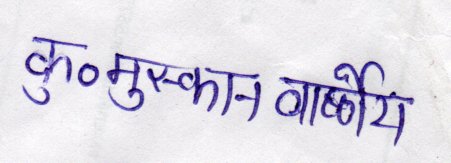 कु० मुस्कान वार्ष्णेय